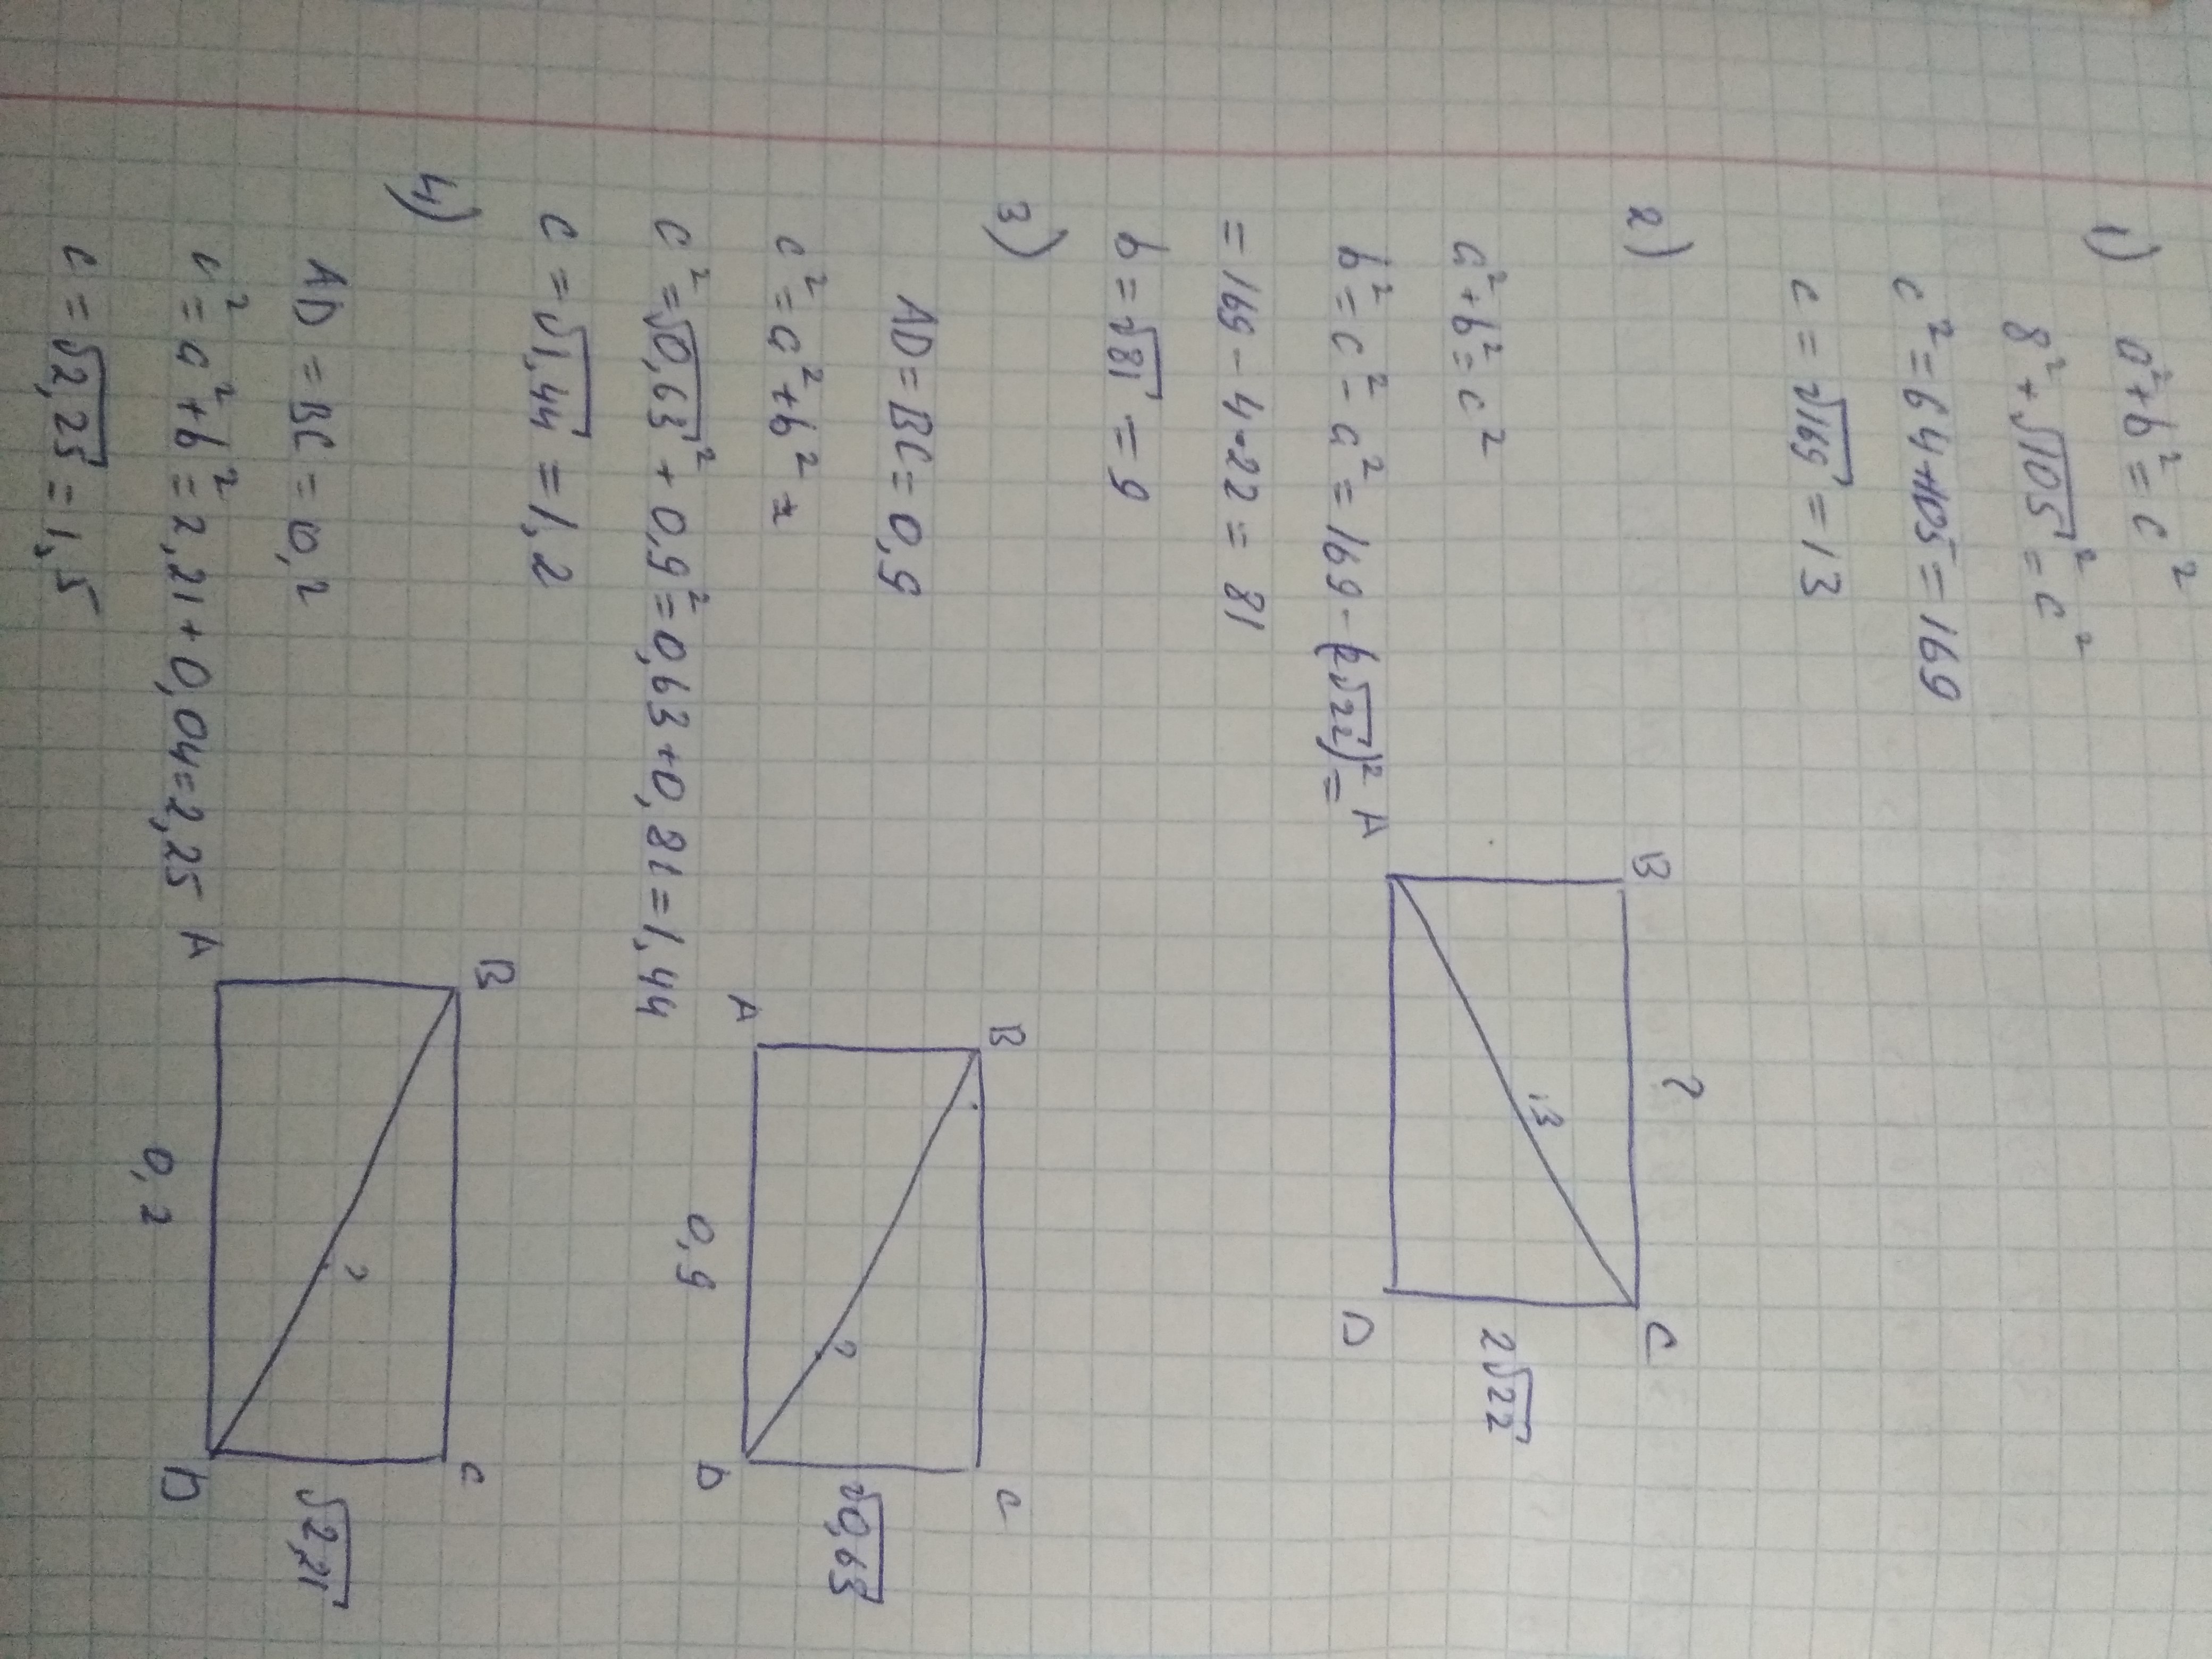 1) a²+b²=c²
8²+√105²=c²
c²=64+105=169
c=√169=13
2)
a²+b²=c²
b²=c²-a²=169-(2√22)²=
=169-4·22=81
b=√81=9
B ? C
13
2√22
A D
3)
AD=BC=0,9
c²=a²+b²=
c²=√0,63²+0,9²=0,63+0,81=1,44
c=√1,44=1,2
B C
?
√0,63
A D
0,9
4)
AD=BC=0,2
c²=a²+b²=2,21+0,04=2,25
c=√2,25=1,5
B C
?
√2,21
A D
0,2